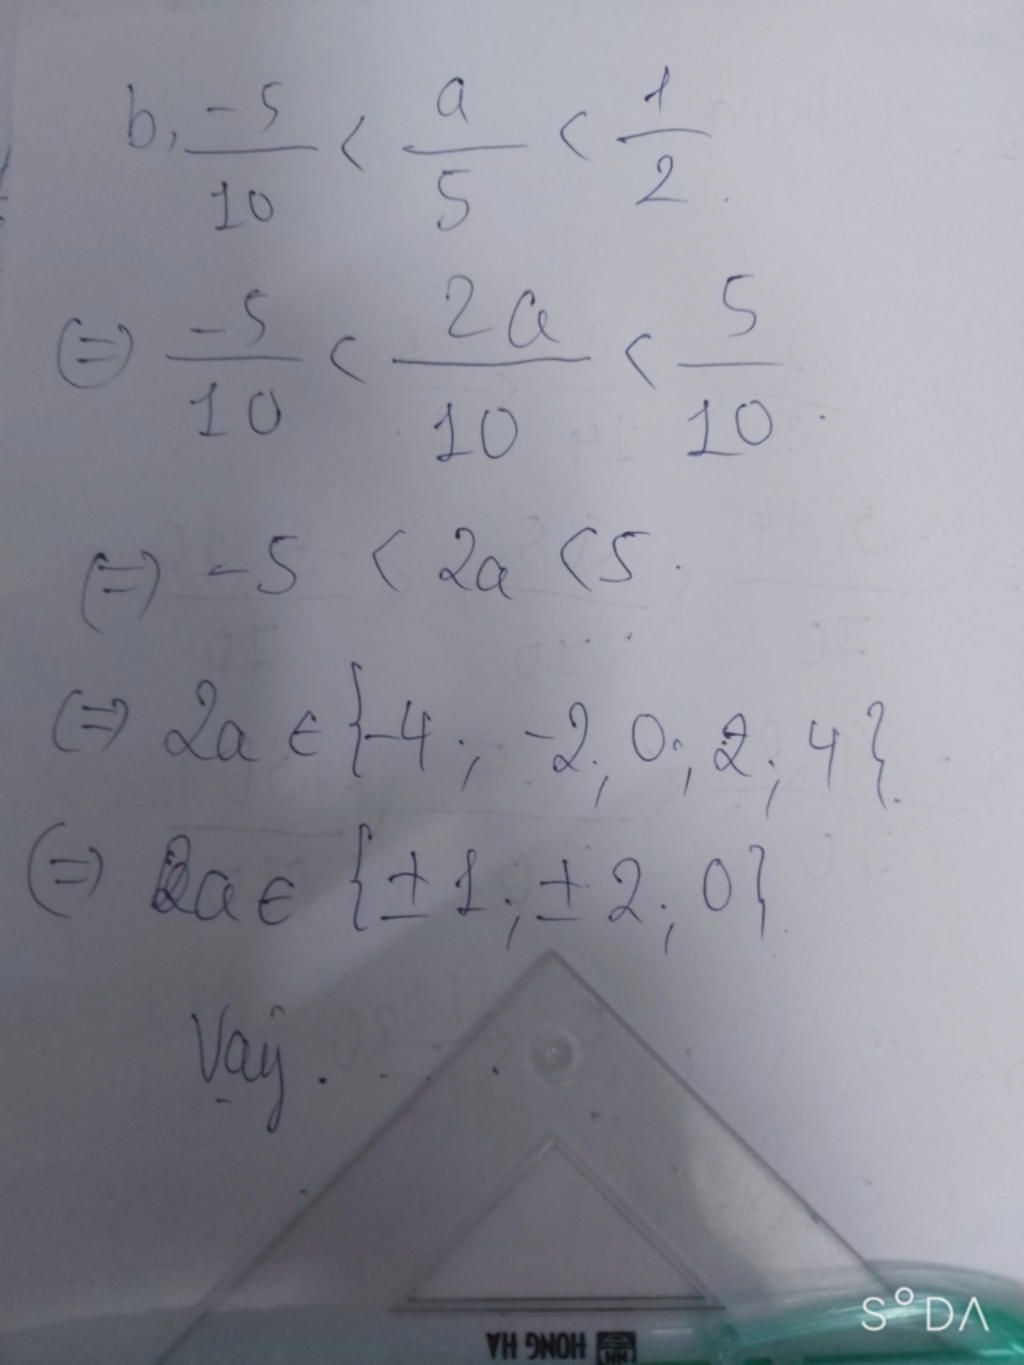 b, -5/10 < a/5 < 1/2.
(=) -5/10 < 2a/10 < 5/10.
(=) -5 < 2a < 5.
(=) 2a ∈ {-4; -2; 0; 2; 4}.
(=) 2a ∈ {±1; ±2; 0}
Vậy. . . .
HONG HA
SODA